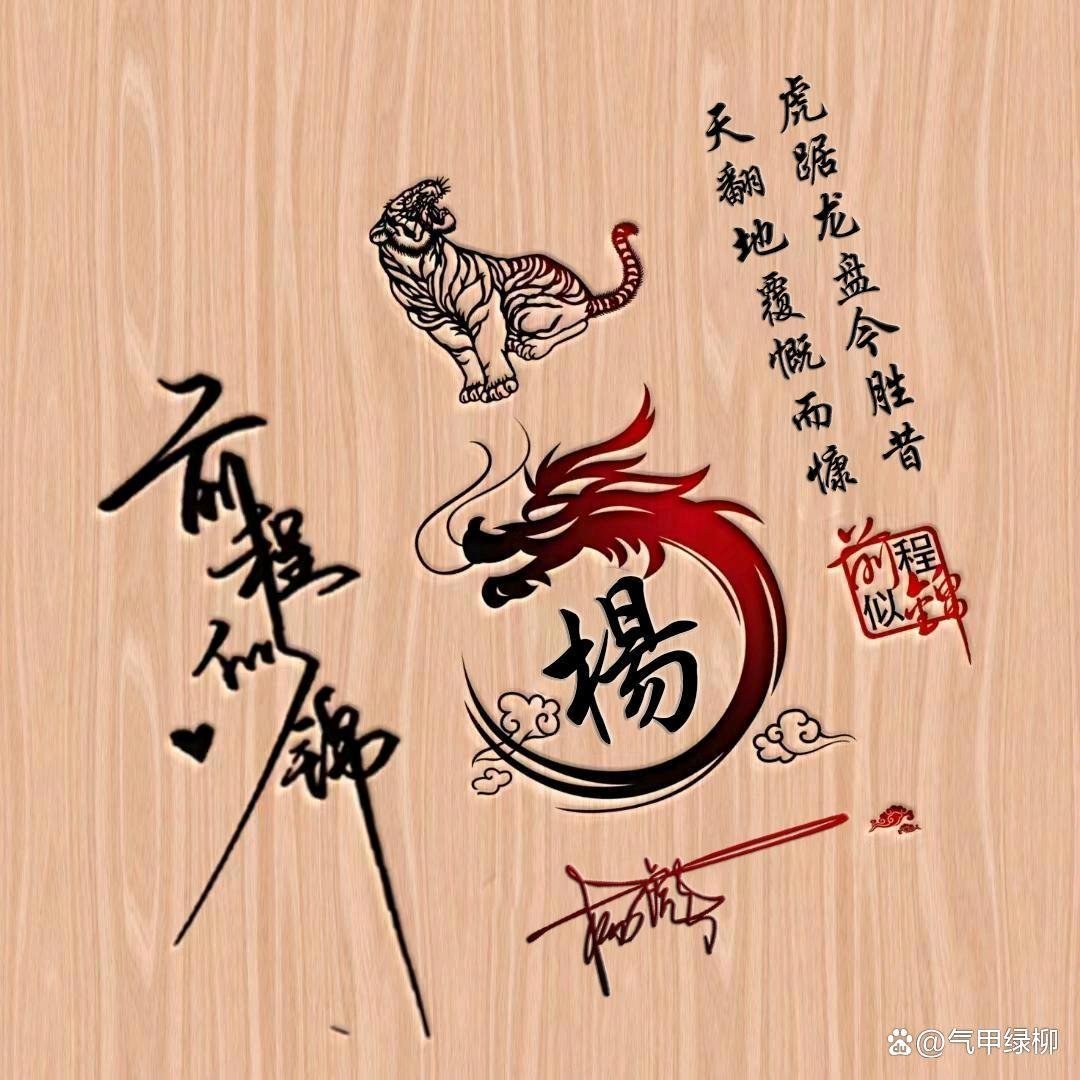 虎踞龙盘今胜昔
天翻地覆慨而慷
前程似锦
前程
似锦
楊
@气甲绿柳